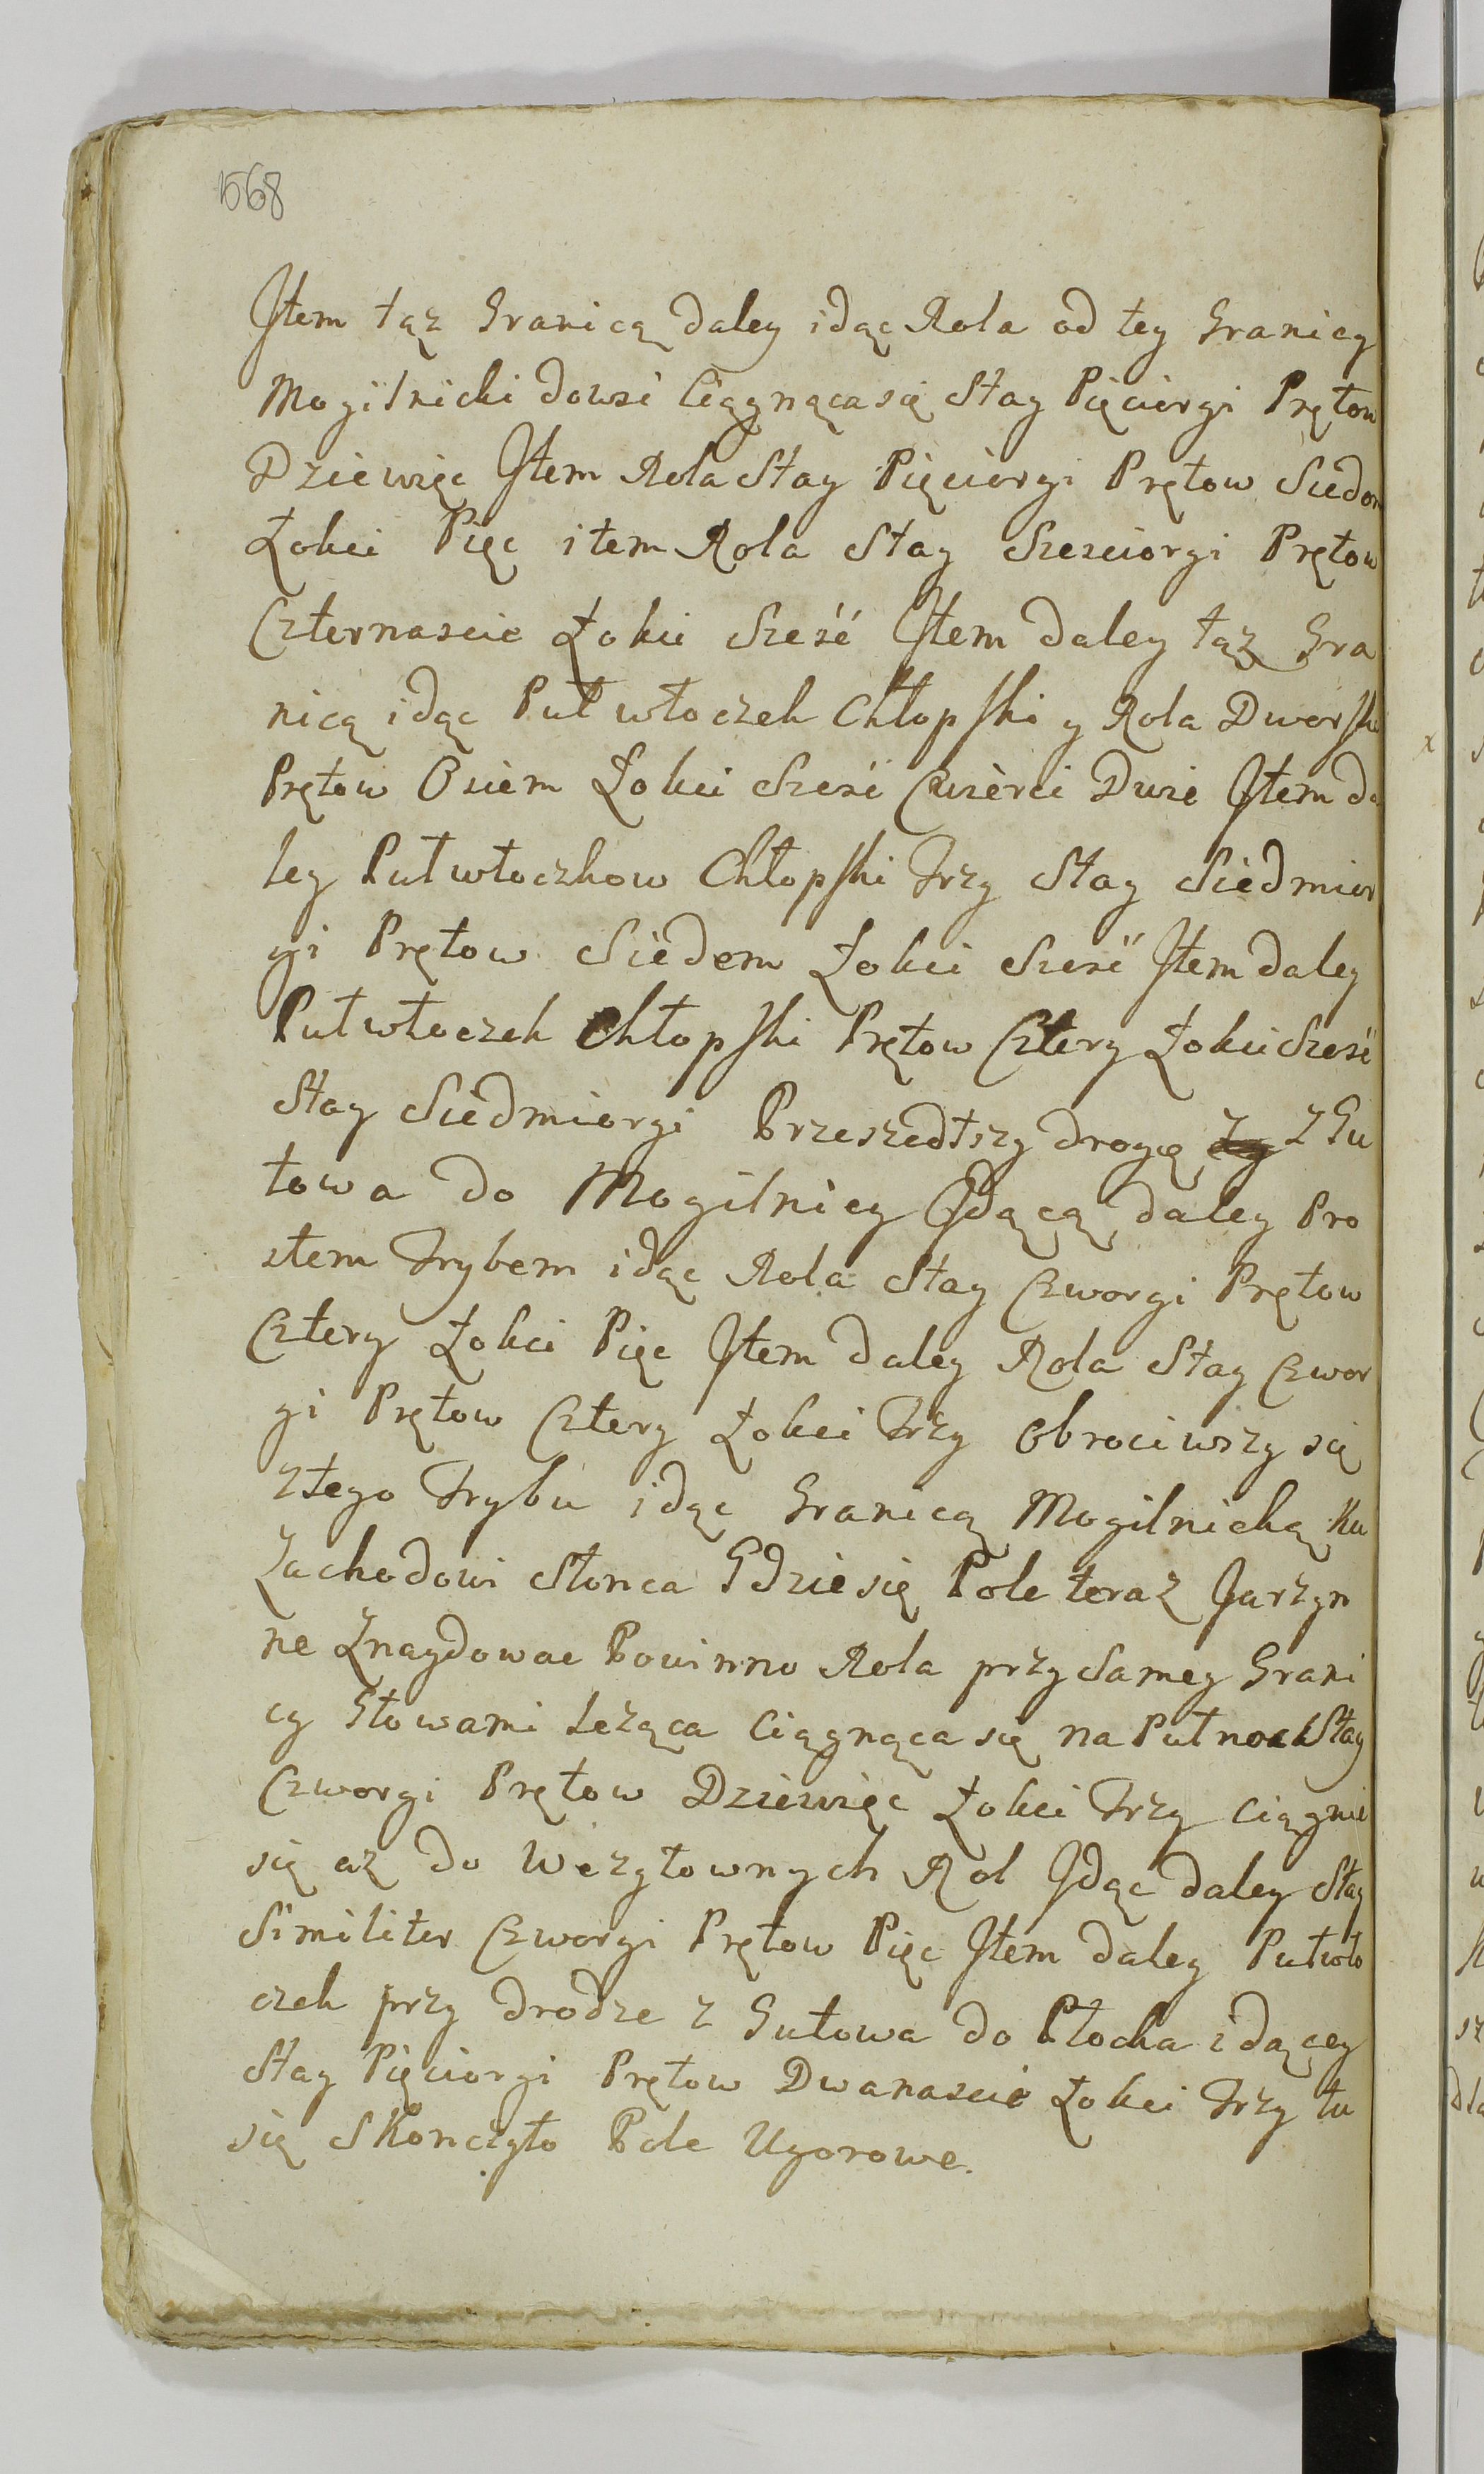 1568
Jtem tąz Granicą daley idąc Rola od tey Granicy
Mogilnicki dowsi Ciągnąca się Stay Pięciorgi Prętow
Dziewięc Jtem Rola Stay Pięciorgi Prętow Siedom
Łokci Pięc item Rola Stay Szesciorgi Prętow
Czternascie Łokci Szesć Jtem daley tąz Gra
nicą idąc Puł włoczek Chłopski y Rola Dworska
Prętow Osiem Łokci Szesć Cwierci Dwie Jtem da
ley Puł włoczkow Chłopski Trzy Stay Siedmior
gi Prętow Siedem Łokci Szesć Jtem daley
Puł włoczek Chłopski Prętow Cztery Łokci Szesć
Stay Siedmiorgi Przeszedłszy drogę z Gu
towa do Mogilnicy Jdącą daley Pro
stem Trybem idąc Rola Stay Czworgi Prętow
Cztery Łokci Pięc Jtem daley Rola Stay Czwor
gi Prętow Cztery Łokci Trzy Obrociwszy się
z tego Trybu idąc Granicą Mogilnicką ku
Zachodowi Słonca Gdzie się Pole teraz Jarzyn
ne Znaydowac Powinno Rola przy Samey Grani
cy Głowami Leżąca Ciągnąca się na Pułnock Stay
Czworgi Prętow Dziewięc Łokci Trzy ciągnie
się az do Wezgłownych Rol Jdąc daley Stay
Similiter Czworgi Prętow Pięc Jtem daley Pułwło
czek przy drodze z Gutowa do Płocka idącey
Stay Pięciorgi Prętow Dwanascie Łokci Trzy tu
się Skonczyło Pole Ugorowe.